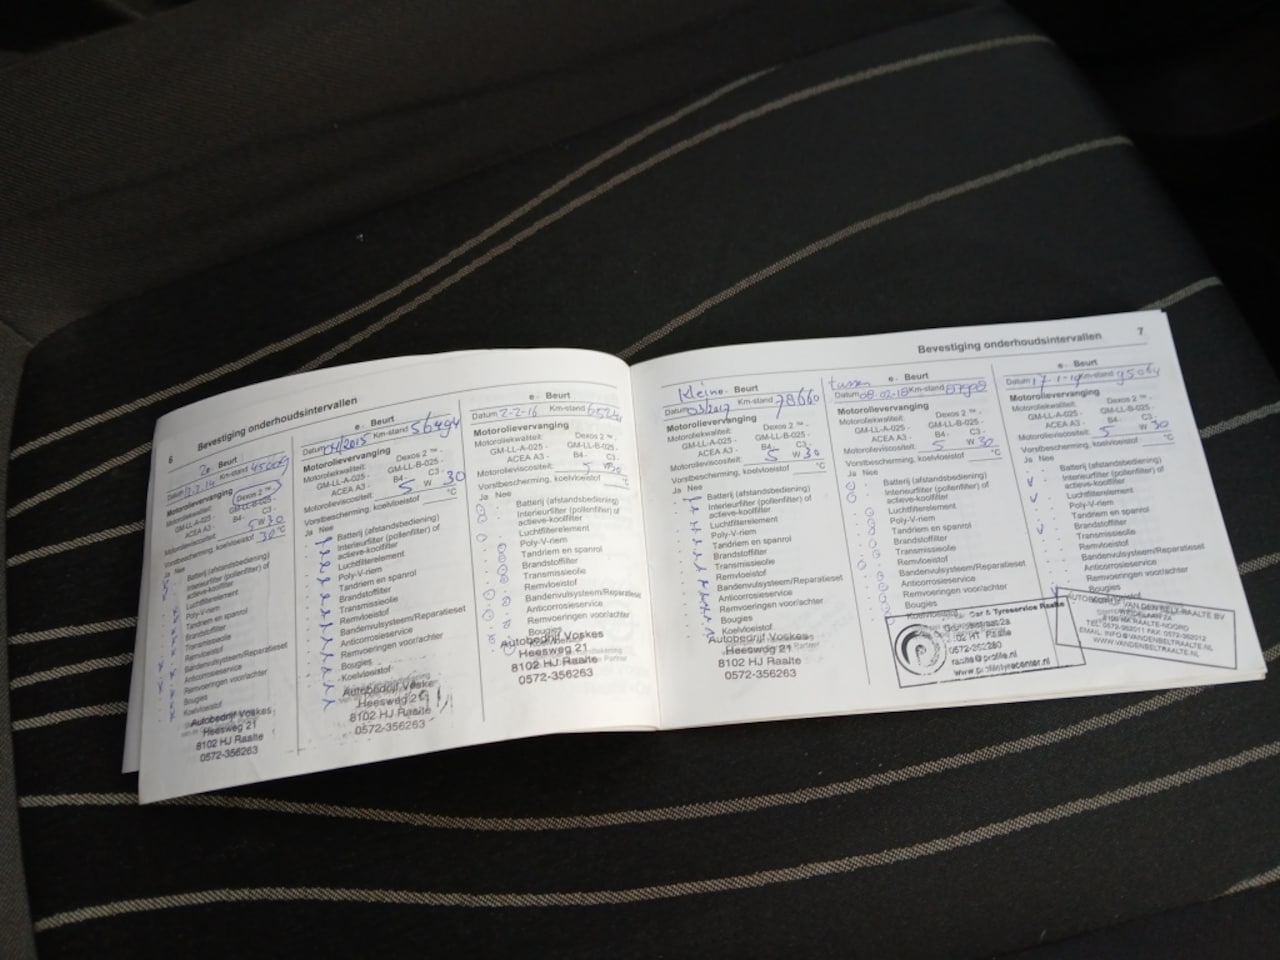 6 Bevestiging onderhoudsintervallen
2e Beurt
Datum Km-stand
Motorolievervanging
Motoroliekwaliteit: Dexos 2 ™ -
GM-LL-A-025 GM-LL-B-025 -
B4- C3 -
Motorolieviscositeit: 5 W 30
Vorstbescherming, koelvloeistof 30 °C
Ja Nee
Batterij (afstandsbediening)
Interieurfilter (pollenfilter) of
actieve-koolfilter
Luchtfilterelement
Poly-V-riem
Tandriem en spanrol
Brandstoffilter
Transmissieolie
Remvloeistof
Bandenvulsysteem/Reparatieset
Anticorrosieservice
Remvoeringen voor/achter
Bougies
Koelvloeistof
Autobedrijf Voskes
Heesweg 21
8102 HJ Raalte
0572-356263
e - Beurt
Datum 04/2015 Km-stand 56494
Motorolievervanging
Motoroliekwaliteit: Dexos 2 ™ -
GM-LL-A-025 - GM-LL-B-025 -
ACEA A3 - B4 - C3 -
Motorolieviscositeit: 5 W 30
Vorstbescherming, koelvloeistof °C
Ja Nee
Batterij (afstandsbediening)
Interieurfilter (pollenfilter) of
actieve-koolfilter
Luchtfilterelement
Poly-V-riem
Tandriem en spanrol
Brandstoffilter
Transmissieolie
Remvloeistof
Bandenvulsysteem/Reparatieset
Anticorrosieservice
Remvoeringen voor/achter
Bougies
Koelvloeistof
Autobedrijf Voske
Heesweg 21
8102 HJ Raalte
0572-356263
e - Beurt
Datum 2-2-16 Km-stand
Motorolievervanging
Motoroliekwaliteit: Dexos 2 ™ -
GM-LL-A-025 - GM-LL-B-025 -
ACEA A3 - B4 - C3 -
Motorolieviscositeit: 5 W 30
Vorstbescherming, koelvloeistof °C
Ja Nee
Batterij (afstandsbediening)
Interieurfilter (pollenfilter) of
actieve-koolfilter
Luchtfilterelement
Poly-V-riem
Tandriem en spanrol
Brandstoffilter
Transmissieolie
Remvloeistof
Bandenvulsysteem/Reparatieset
Anticorrosieservice
Remvoeringen voor/achter
Bougies
Autobedrijf Voskes
Heesweg 21
8102 HJ Raalte
0572-356263
Bevestiging onderhoudsintervallen 7
kleine Beurt
Datum 03/2017 Km-stand 78660
Motorolievervanging
Motoroliekwaliteit: Dexos 2 ™ -
GM-LL-A-025 - GM-LL-B-025 -
ACEA A3 - B4 - C3 -
Motorolieviscositeit: 5 W 30
Vorstbescherming, koelvloeistof °C
Ja Nee
Batterij (afstandsbediening)
Interieurfilter (pollenfilter) of
actieve-koolfilter
Luchtfilterelement
Poly-V-riem
Tandriem en spanrol
Brandstoffilter
Transmissieolie
Remvloeistof
Bandenvulsysteem/Reparatieset
Anticorrosieservice
Remvoeringen voor/achter
Bougies
Koelvloeistof
Autobedrijf Voskes
Heesweg 21
8102 HJ Raalte
0572-356263
tussen e - Beurt
Datum 08-02-18 Km-stand
Motorolievervanging
Motoroliekwaliteit: Dexos 2 ™ -
GM-LL-A-025 - GM-LL-B-025 -
ACEA A3 - B4 - C3 -
Motorolieviscositeit: 5 W 30
Vorstbescherming, koelvloeistof °C
Ja Nee
Batterij (afstandsbediening)
Interieurfilter (pollenfilter) of
actieve-koolfilter
Luchtfilterelement
Poly-V-riem
Tandriem en spanrol
Brandstoffilter
Transmissieolie
Remvloeistof
Bandenvulsysteem/Reparatieset
Anticorrosieservice
Remvoeringen voor/achter
Bougies
Car & Tyreservice Raalte
Raalte
raalte@profile.nl
e - Beurt
Datum Km-stand 95064
Motorolievervanging
Motoroliekwaliteit: Dexos 2 ™ -
GM-LL-A-025 - GM-LL-B-025 -
ACEA A3 - B4 - C3 -
Motorolieviscositeit: 5 W 30
Vorstbescherming, koelvloeistof °C
Ja Nee
Batterij (afstandsbediening)
Interieurfilter (pollenfilter) of
actieve-koolfilter
Luchtfilterelement
Poly-V-riem
Tandriem en spanrol
Brandstoffilter
Transmissieolie
Remvloeistof
Bandenvulsysteem/Reparatieset
Anticorrosieservice
Remvoeringen voor/achter
Bougies
AUTOBEDRIJF VAN DEN BELT RAALTE BV
RAALTE-NOORD
TEL 0572-352011 FAX 0572-352012
EMAIL: INFO@VANDENBELTRAALTE.NL
WWW.VANDENBELTRAALTE.NL